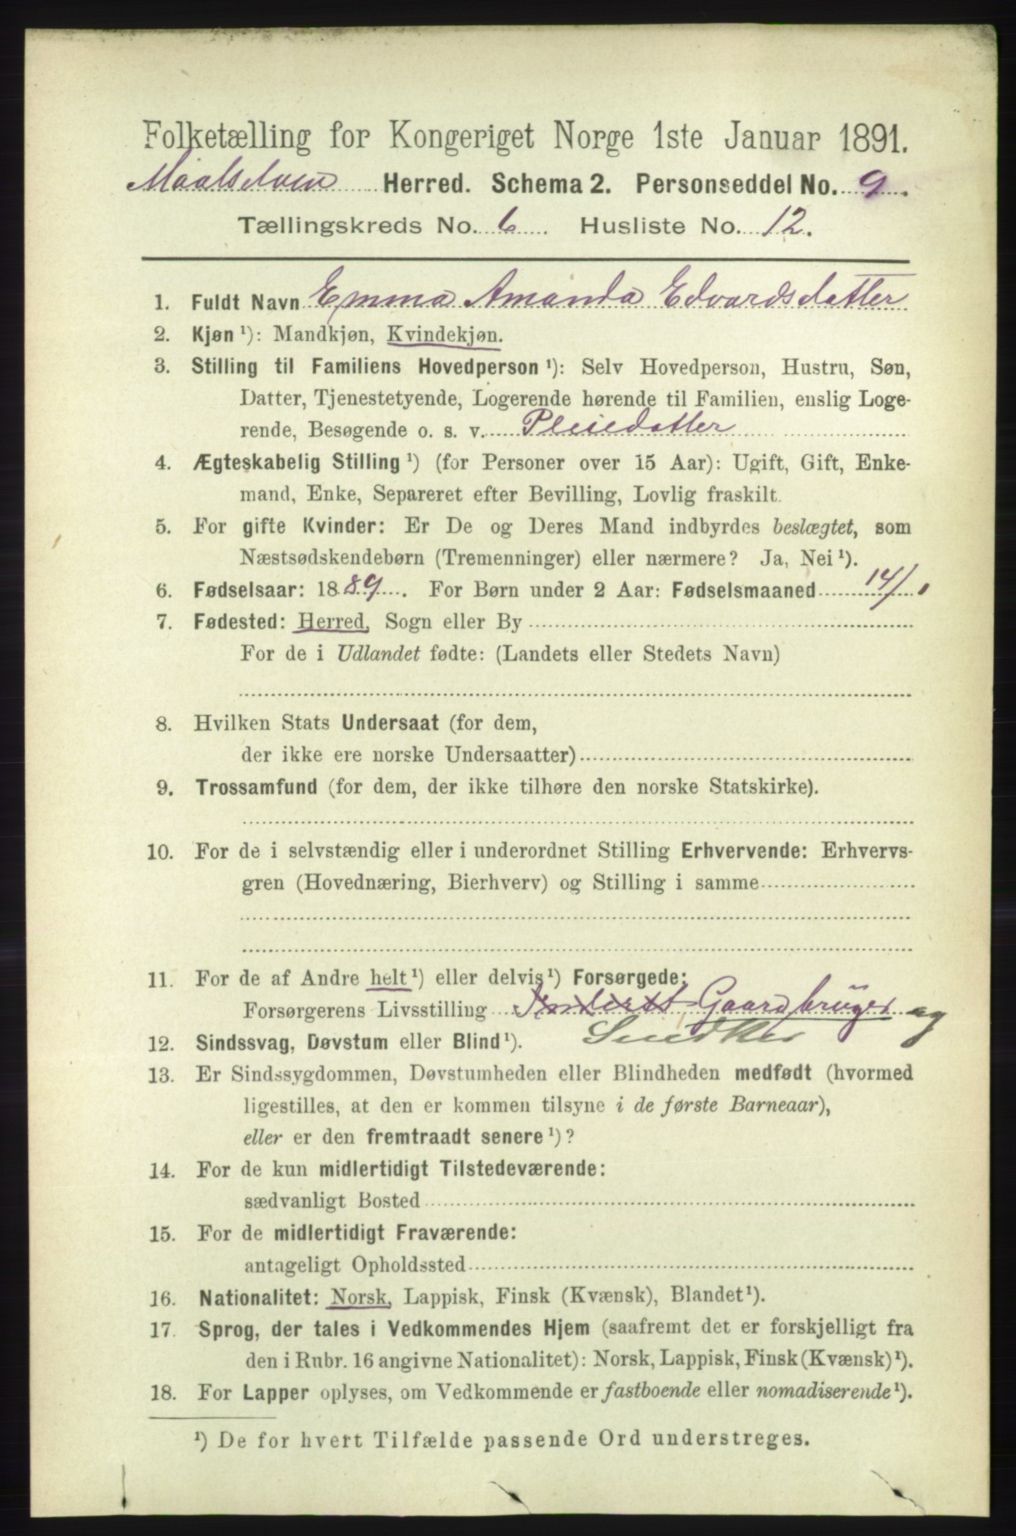 Folketælling for Kongeriget Norge 1ste Januar 1891.
Maalselven Herred. Schema 2. Personseddel No. 9.
Tællingskreds No. 6. Husliste No. 12.
1. Fuldt Navn Emma Amanda Edvardsdatter
2. Kjøn ¹): Mandkjøn, Kvindekjøn.
3. Stilling til Familiens Hovedperson ¹): Selv Hovedperson, Hustru, Søn,
Datter, Tjenestetyende, Logerende hørende til Familien, enslig Loge-
rende, Besøgende o. s. v. Pleiedatter
4. Ægteskabelig Stilling ¹) (for Personer over 15 Aar): Ugift, Gift, Enke-
mand, Enke, Separeret efter Bevilling, Lovlig fraskilt.
5. For gifte Kvinder: Er De og Deres Mand indbyrdes beslægtet, som
Næstsødskendebørn (Tremenninger) eller nærmere? Ja, Nei ¹).
6. Fødselsaar: 1889. For Børn under 2 Aar: Fødselsmaaned 14/1
7. Fødested: Herred, Sogn eller By
For de i Udlandet fødte: (Landets eller Stedets Navn)
8. Hvilken Stats Undersaat (for dem,
der ikke ere norske Undersaatter)
9. Trossamfund (for dem, der ikke tilhøre den norske Statskirke).
10. For de i selvstændig eller i underordnet Stilling Erhvervende: Erhvervs-
gren (Hovednæring, Bierhverv) og Stilling i samme
11. For de af Andre helt ¹) eller delvis ¹) Forsørgede:
Forsørgerens Livsstilling Gaardbruger og
12. Sindssvag, Døvstum eller Blind ¹). Snedker
13. Er Sindssygdommen, Døvstumheden eller Blindheden medfødt (hvormed
ligestilles, at den er kommen tilsyne i de første Barneaar),
eller er den fremtraadt senere ¹)?
14. For de kun midlertidigt Tilstedeværende:
sædvanligt Bosted
15. For de midlertidigt Fraværende:
antageligt Opholdssted
16. Nationalitet: Norsk, Lappisk, Finsk (Kvænsk), Blandet ¹).
17. Sprog, der tales i Vedkommendes Hjem (saafremt det er forskjelligt fra
den i Rubr. 16 angivne Nationalitet): Norsk, Lappisk, Finsk (Kvænsk) ¹).
18. For Lapper oplyses, om Vedkommende er fastboende eller nomadiserende ¹).
¹) De for hvert Tilfælde passende Ord understreges.